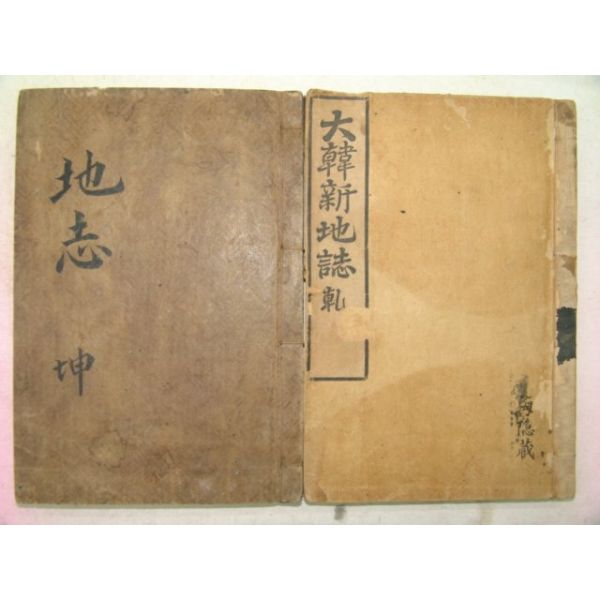 大韓新地誌 乾
隱藏
地志 坤